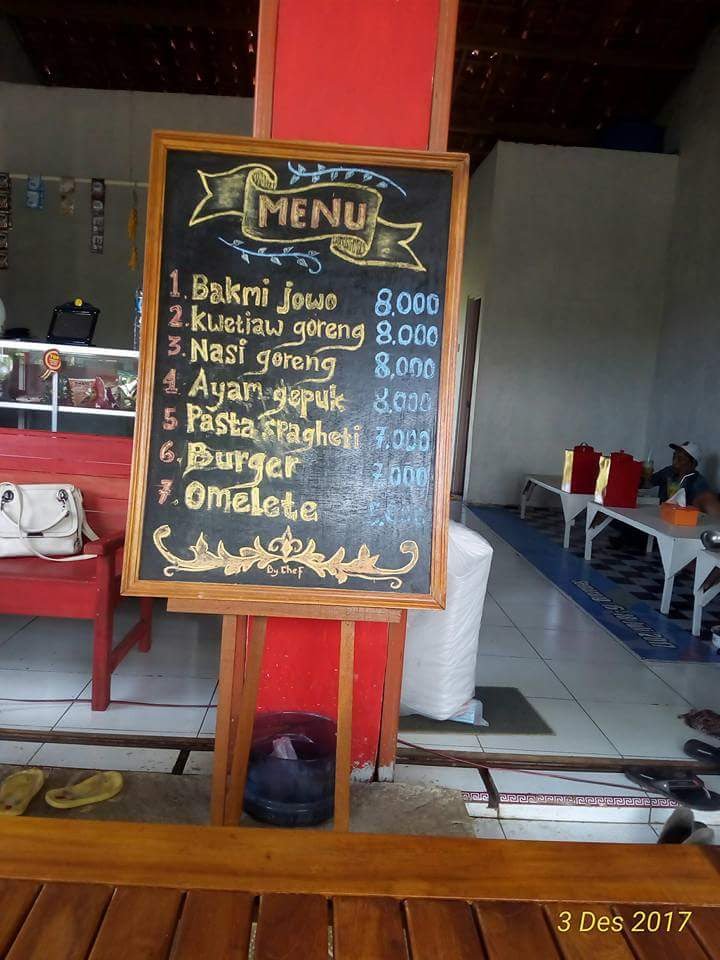 MENU
1. Bakmi jowo 8.000
2. Kwetiaw goreng 8.000
3. Nasi goreng 8,000
4 Ayam gepuk 8.000
5 Pasta spagheti 7.000
6. Burger 7.000
7. Omelete
By Chef
3 Des 2017